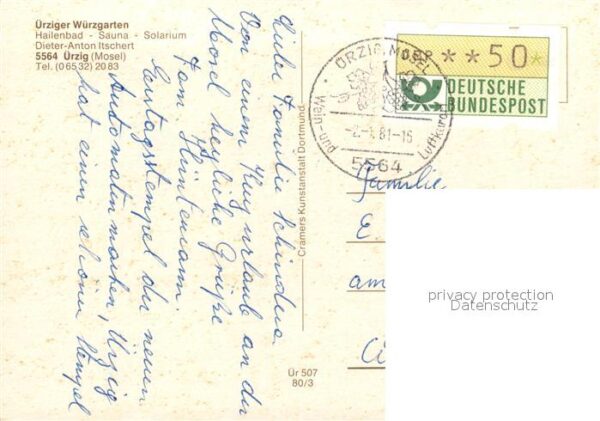 Ürziger Würzgarten
Hallenbad - Sauna - Solarium
Dieter-Anton Itschert
5564 Ürzig (Mosel)
Tel. (0 65 32) 20 83
Liebe Familie
Von einem Kurzurlaub an der
Mosel herzliche Grüße
Fam.
Ersttagsstempel der neuen
Automatenmarken, Ürzig
hat einen schönen Stempel
Cramers Kunstanstalt Dortmund
Ür 507
80/3
ÜRZIG, MOSEL
Wein- und Luftkurort
-2.-1.81-15
5564
DBP * * 50 *
DEUTSCHE
BUNDESPOST
Familie
E.
am
privacy protection
Datenschutz